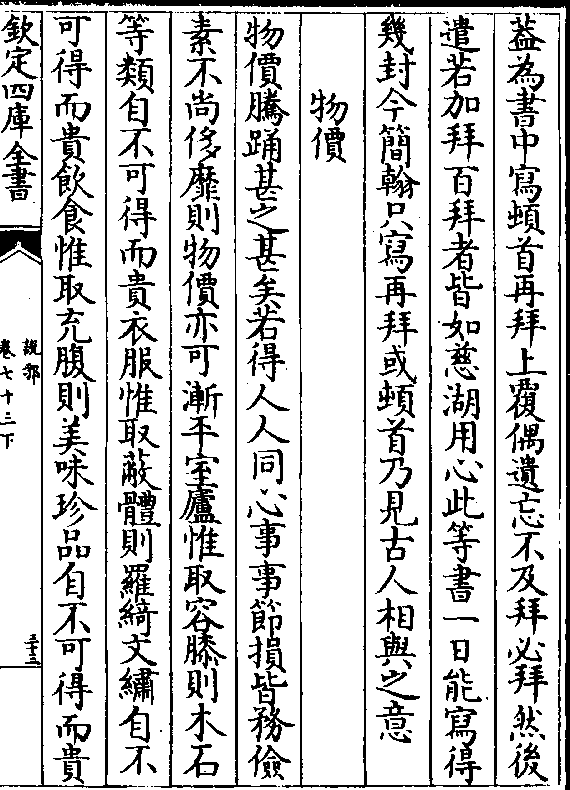 葢為書中寫頓首再拜上覆偶遺忘不及拜必拜然後
遣若加拜百拜者皆如慈湖用心此等書一日能寫得
幾封今簡翰只寫再拜或頓首乃見古人相與之意
物價
物價騰踊甚之甚矣若得人人同心事事節損皆務儉
素不尚侈靡則物價亦可漸平室廬惟取容膝則木石
等類自不可得而貴衣服惟取蔽體則羅綺文繡自不
可得而貴飲食惟取充腹則美味珍品自不可得而貴
欽定四庫全書
說郛
卷七十三下
三十三